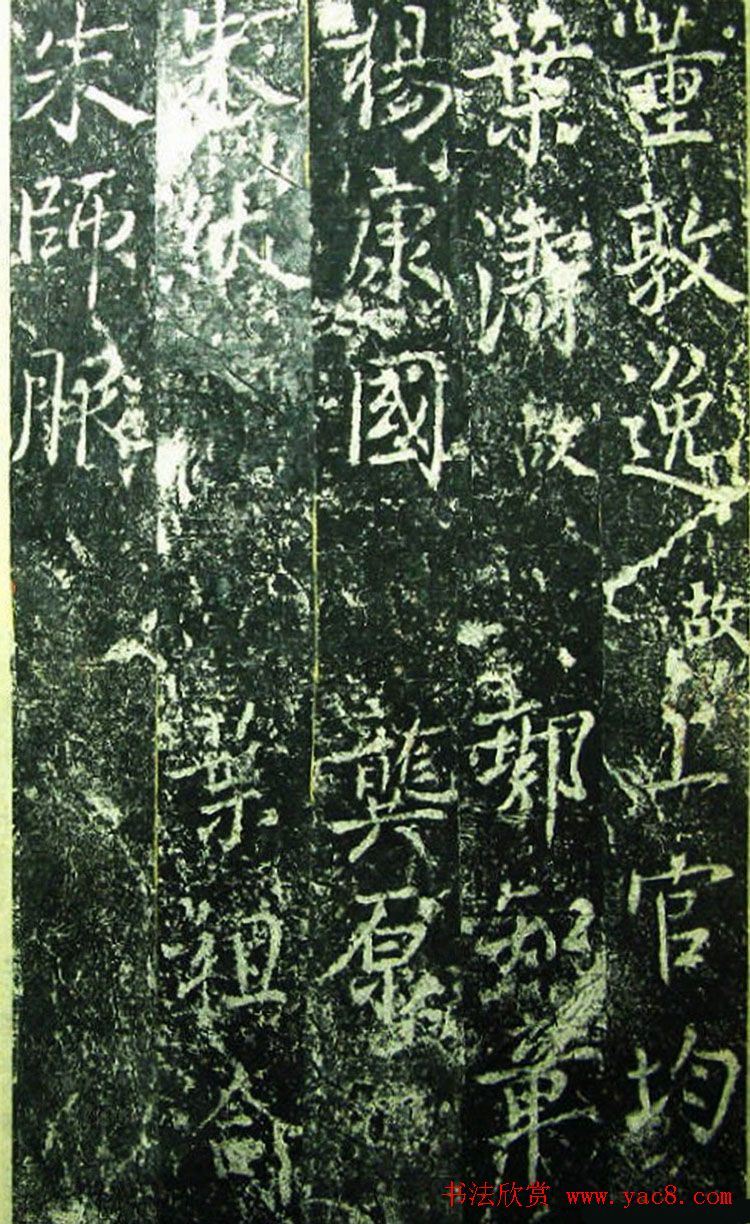 董敦逸故 上官均
葉濤故 郭知章
楊康國 龔原
朱紱 葉祖洽
朱師服
书法欣赏 www.yac8.com